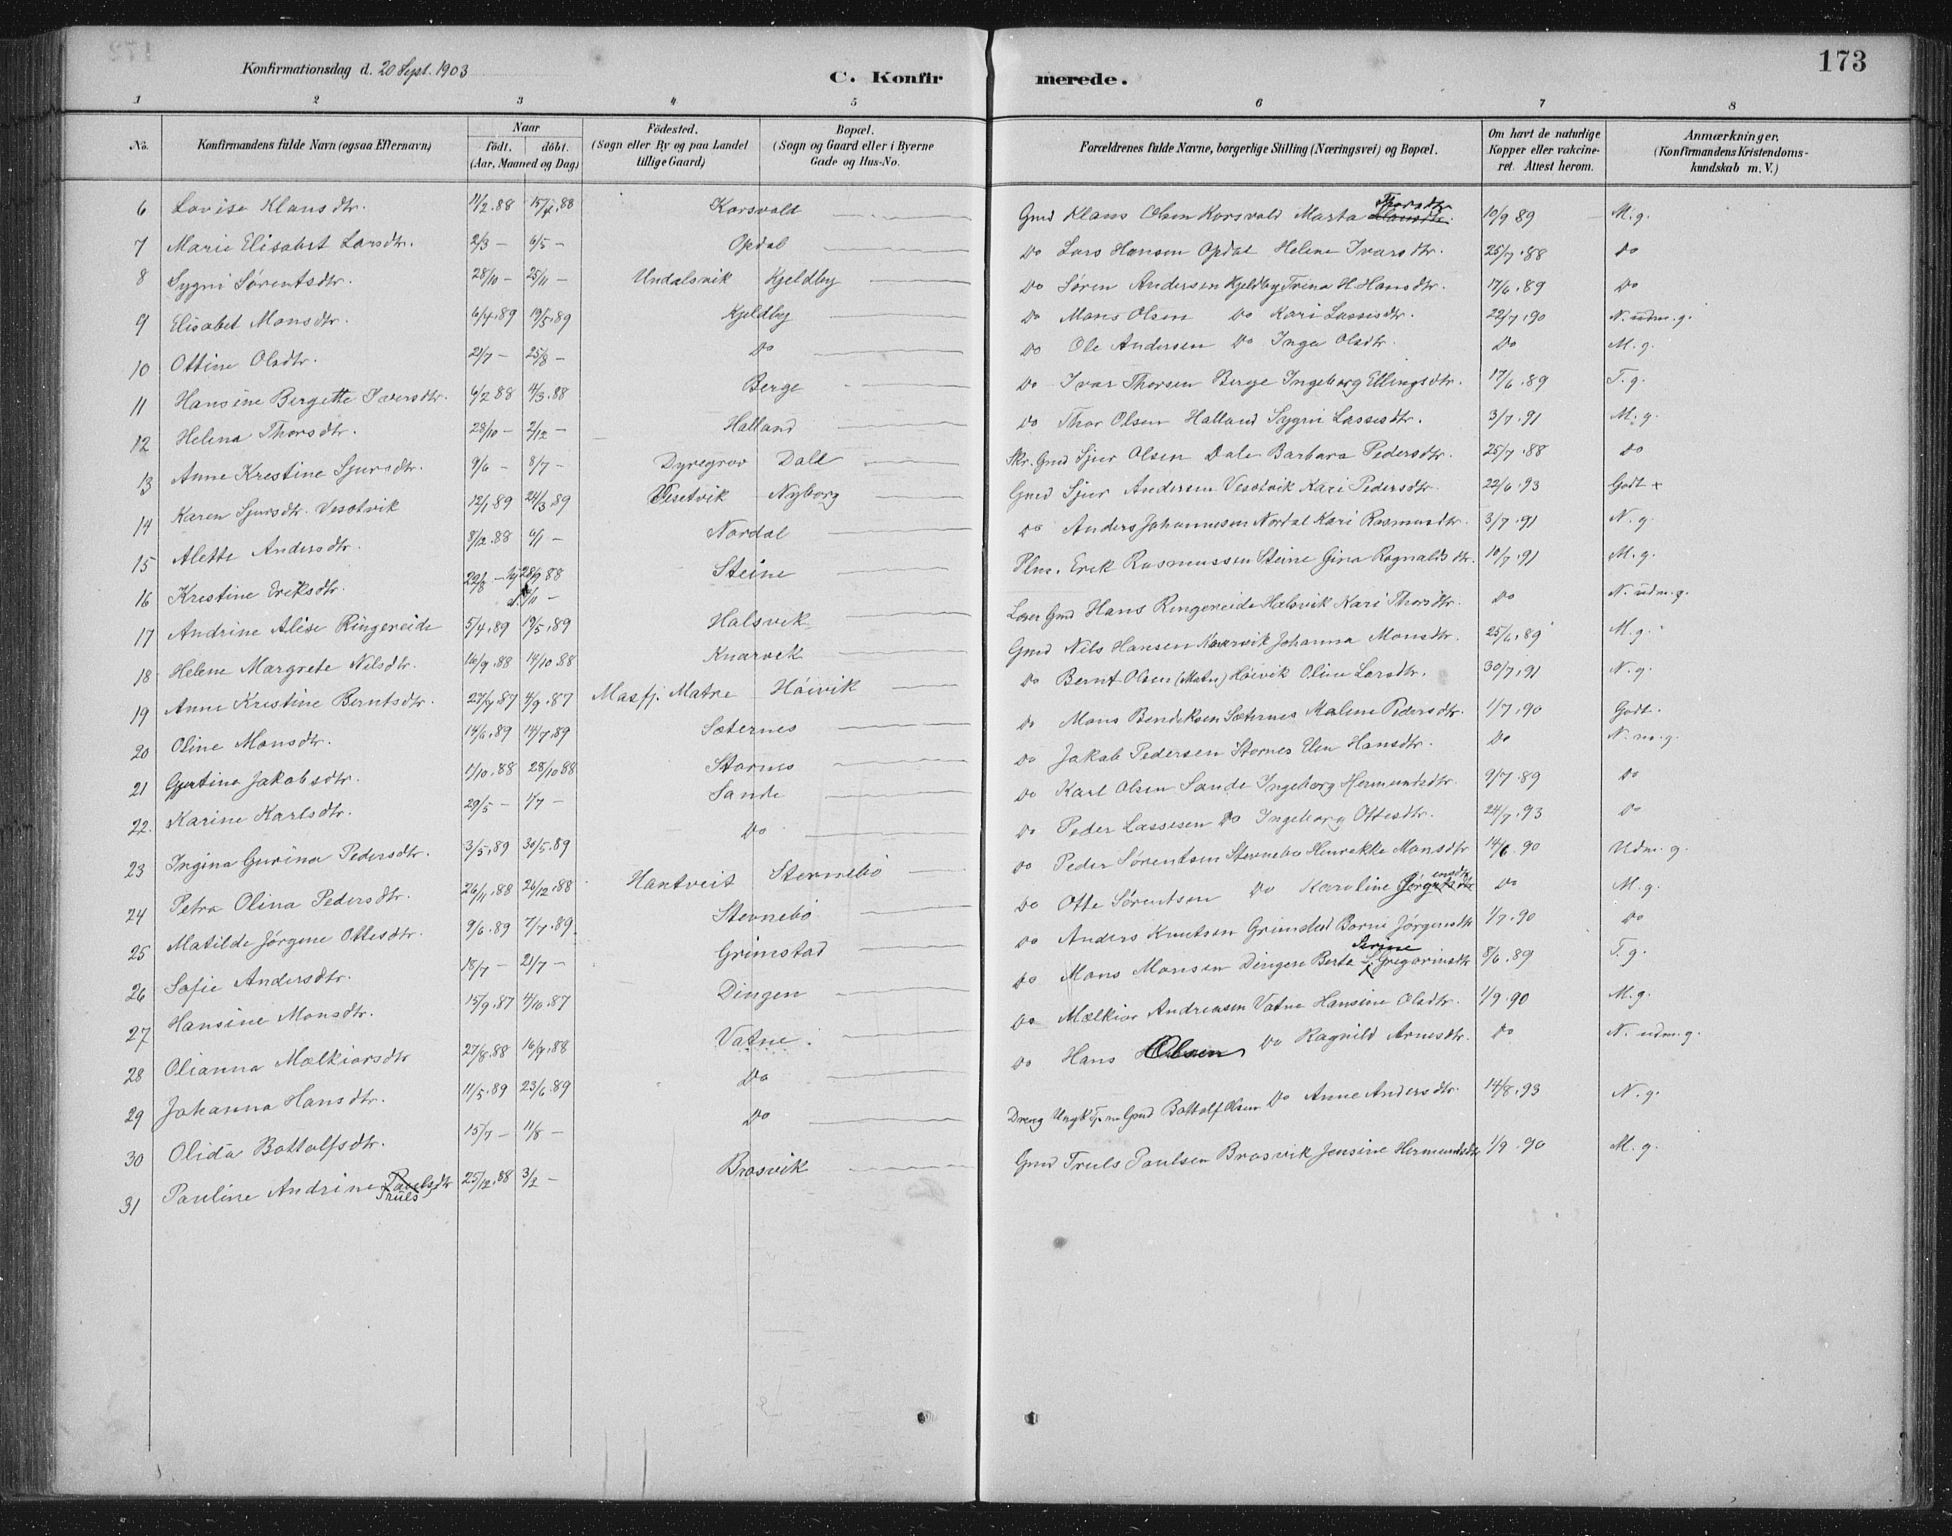 173
Konfirmationsdag d. 20 Sept. 1903
C. Konfirmerede.
1 2 3 4 5 6 7 8
No. Konfirmandens fulde Navn (ogsaa Efternavn) Naar født. døbt. (Aar, Maaned og Dag) Fødested. (Sogn eller By og paa Landet tillige Gaard) Bopæl. (Sogn og Gaard eller i Byerne Gade og Hus-No. Forældrenes fulde Navne, borgerlige Stilling (Næringsvei) og Bopæl. Om havt de naturlige Kopper eller vakcineret. Attest herom. Anmærkninger. (Konfirmandens Kristendomskundskab m. V.)
6 Lovise Klausdtr. 11/2.88 Korsvold Gmd Klaus Olsen Korsvold Marta Thorsdtr. 10/9 89 M. g.
7 Marie Elisabet Larsdtr. 2/3 — 6/5 — Opdal Do Lars Hansen Opdal Helene Ivarsdtr. 25/7.88 Do
8 Sygni Sørentsdtr. 28/10 — 25/11 — Undalsvik Kjeldby Do Søren Andersen Kjeldby Trina H Hansdtr. 17/6.89 Do
9 Elisabet Monsdtr. 6/4.89 19/5.89 Kjeldby Do Mons Olsen Do Kari Lassesdtr. 22/7.90 N. udm. g.
10 Ottine Olsdtr. 21/7 — 25/8 — Do Do Ole Andersen Do Inga Olsdtr. Do M. g.
11 Hansine Bergitte Iversdtr. 6/2 88 4/3.88 Berge Do Ivar Thorsen Berge Ingeborg Ellingsdtr. 17/6.89 T. g.
12 Helena Thorsdtr. 28/10 — 2/12 — Halland Do Thor Olsen Halland Sygni Lassesdtr. 3/7.91 M. g.
13 Anne Krestine Sjursdtr. 9/6 — 8/7 — Dyregrov Dale Skr. Gmd Sjur Olsen Dale Barbara Pedersdtr. 25/7.88 Do
14 Karen Sjursdtr. Vesotvik 12/1 89 24/3.89 Vesetvik Nyborg Gmd Sjur Andersen Vesotvik Kari Pedersdtr. 22/6 93 Godt x
15 Alette Andersdtr. 8/12.88 6/1 — Nordal Do Anders Johannesen Nordal Kari Rasmusdtr. 3/7.91 N. g.
16 Krestine Eriksdtr. 28/9 88 Steine Plm. Erik Rasmussen Steine Gina Ragnaldsdtr. 10/7.91 M. g.
17 Andrine Alise Ringereide 5/4.89 19/5.89 Halsvik Løser Gmd Hans Ringereide Halsvik Kari Thorsdtr. Do N. udm. g.
18 Helene Margrete Nilsdtr. 16/9.88 14/10.88 Knarvik Gmd Nils Hansen Knarvik Johanna Monsdtr. 25/6.89 M. g.
19 Anne Krestine Berntsdtr. 4/9.87 Masfj. Matre Høivik Do Bernt Olsen (Matre) Høivik Oline Larsdtr. 30/7.91 N. g.
20 Oline Monsdtr. 14/6.89 14/7.89 Sæternes Do Mons Bendiksen Sæternes Malene Pedersdtr. 1/7.90 Godt.
21 Gjertina Jakobsdtr. 1/10.88 28/10.88 Stornes Do Jakob Pedersen Stornes Elen Hansdtr. Do N. m. g.
22 Karine Karlsdtr. 29/5 — 1/7 — Sande Do Karl Olsen Sande Ingeborg Hermundsdtr. 9/7.89 Do
23 Ingina Gurina Pedersdtr. 3/5.89 30/5.89 Do Do Peder Lassesen Do Ingeborg Ottesdtr. 24/7.93 Do
24 Petra Olina Pedersdtr. 26/11.88 26/12.88 Hantveit Sternebø Do Peder Sørentsen Sternebø Henrekke Monsdtr 14/6.90 Udm. g.
25 Matilde Jørgene Ottesdtr. 9/6.89 7/7.89. Sternebø Do Otte Sørentsen Do Karoline Do M. g.
26 Sofie Andersdtr. 18/7 — 21/7 — Grimstad Do Anders Knutsen Grimstad Borni Jørgensdtr 1/7.90 Do
27 Hansine Monsdtr. 15/9.87 4/10.87 Dingen Do Mons Monsen Dingen Berte Serine Gregoriusdtr 8/6.89 T. g.
28 Olianna Mælkiorsdtr 27/8.88 16/9.88 Vatne Do Mælkior Andreasen Vatne Hansine Olsdtr. 1/9.90 M. g.
29 Johanna Hansdtr. 11/5.89 23/6.89 Do Do Hans Olsen Do Ragnild Arnesdtr. Do N. udm. g.
30 Olida Bottolfsdtr. 15/7 — 11/8 — Do Gmd Bottolf Olsen Do Anne Andersdtr. 14/8.93 N. g.
31 Pauline Andrine Paulsdtr Truls 25/12.88 3/2 — Brosvik Gmd Truls Paulsen Brosvik Jensine Hermundsdtr 1/9.90 M. g.